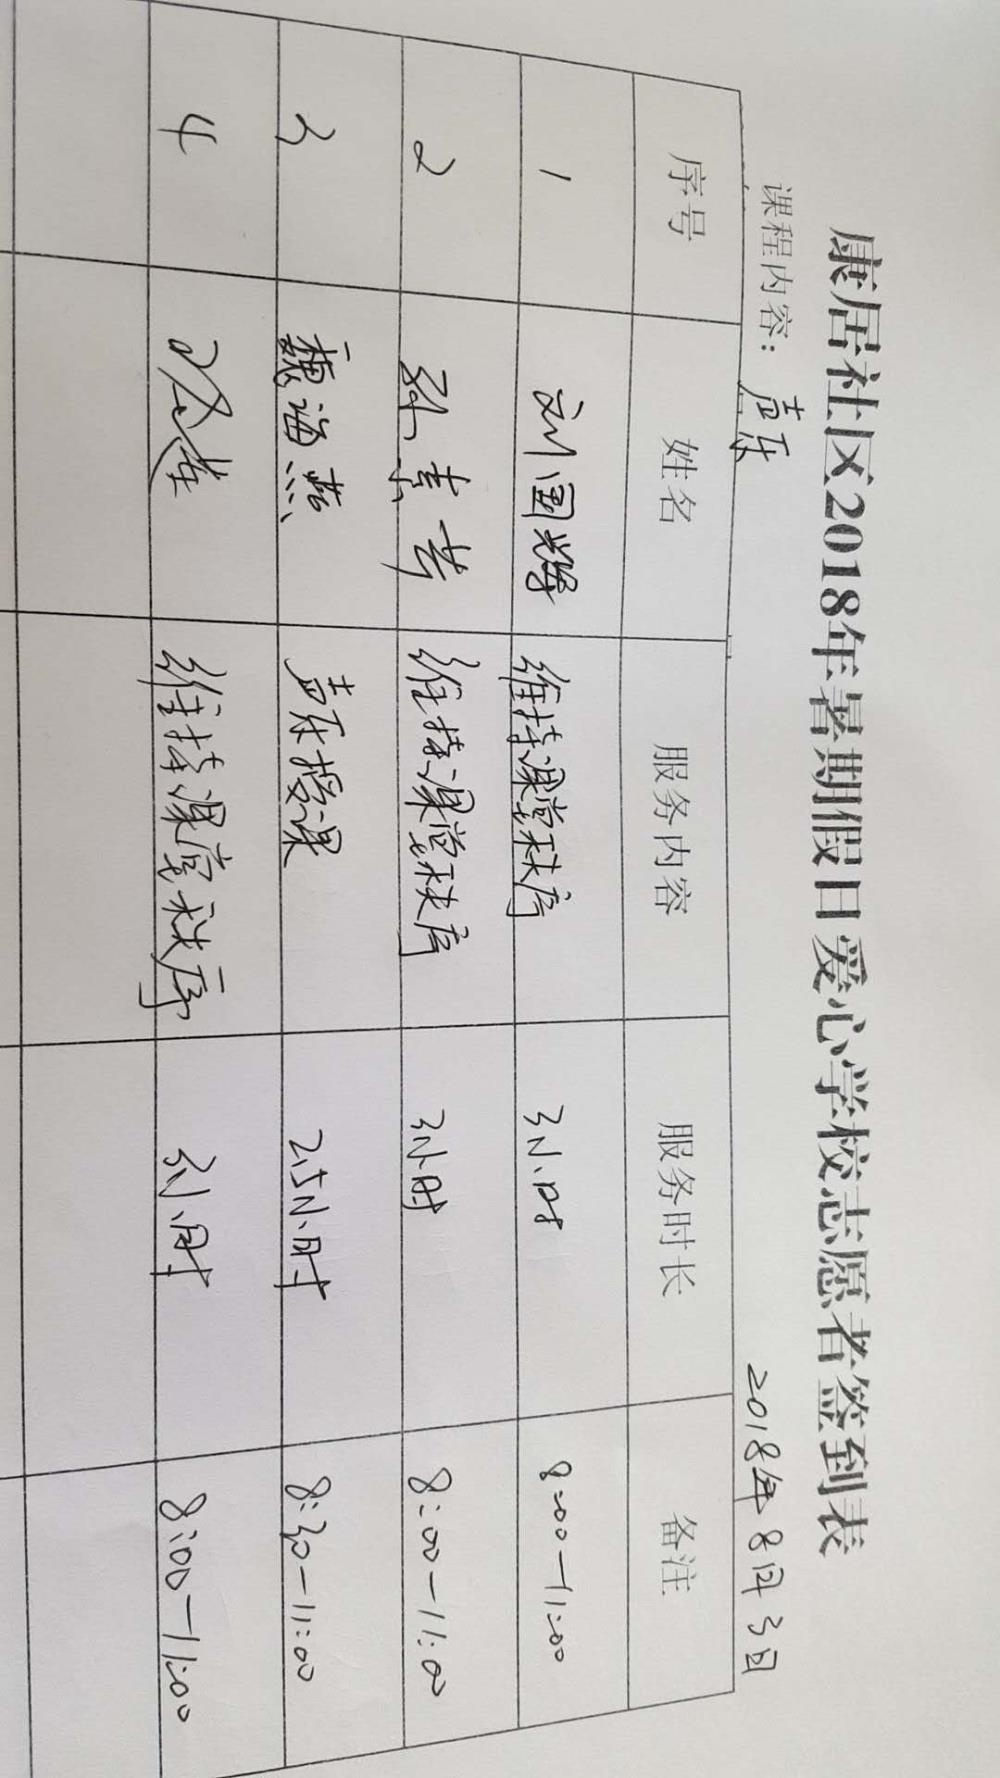 康居社区2018年暑期假日爱心学校志愿者签到表
课程内容：声乐 2018年8月3日
序号 姓名 服务内容 服务时长 备注
1 刘国辉 维持课堂秩序 3小时 8:00-11:00
2 孙素芳 维持课堂秩序 3小时 8:00-11:00
3 魏海燕 声乐授课 2.5小时 8:30-11:00
4 维持课堂秩序 3小时 8:00-11:00